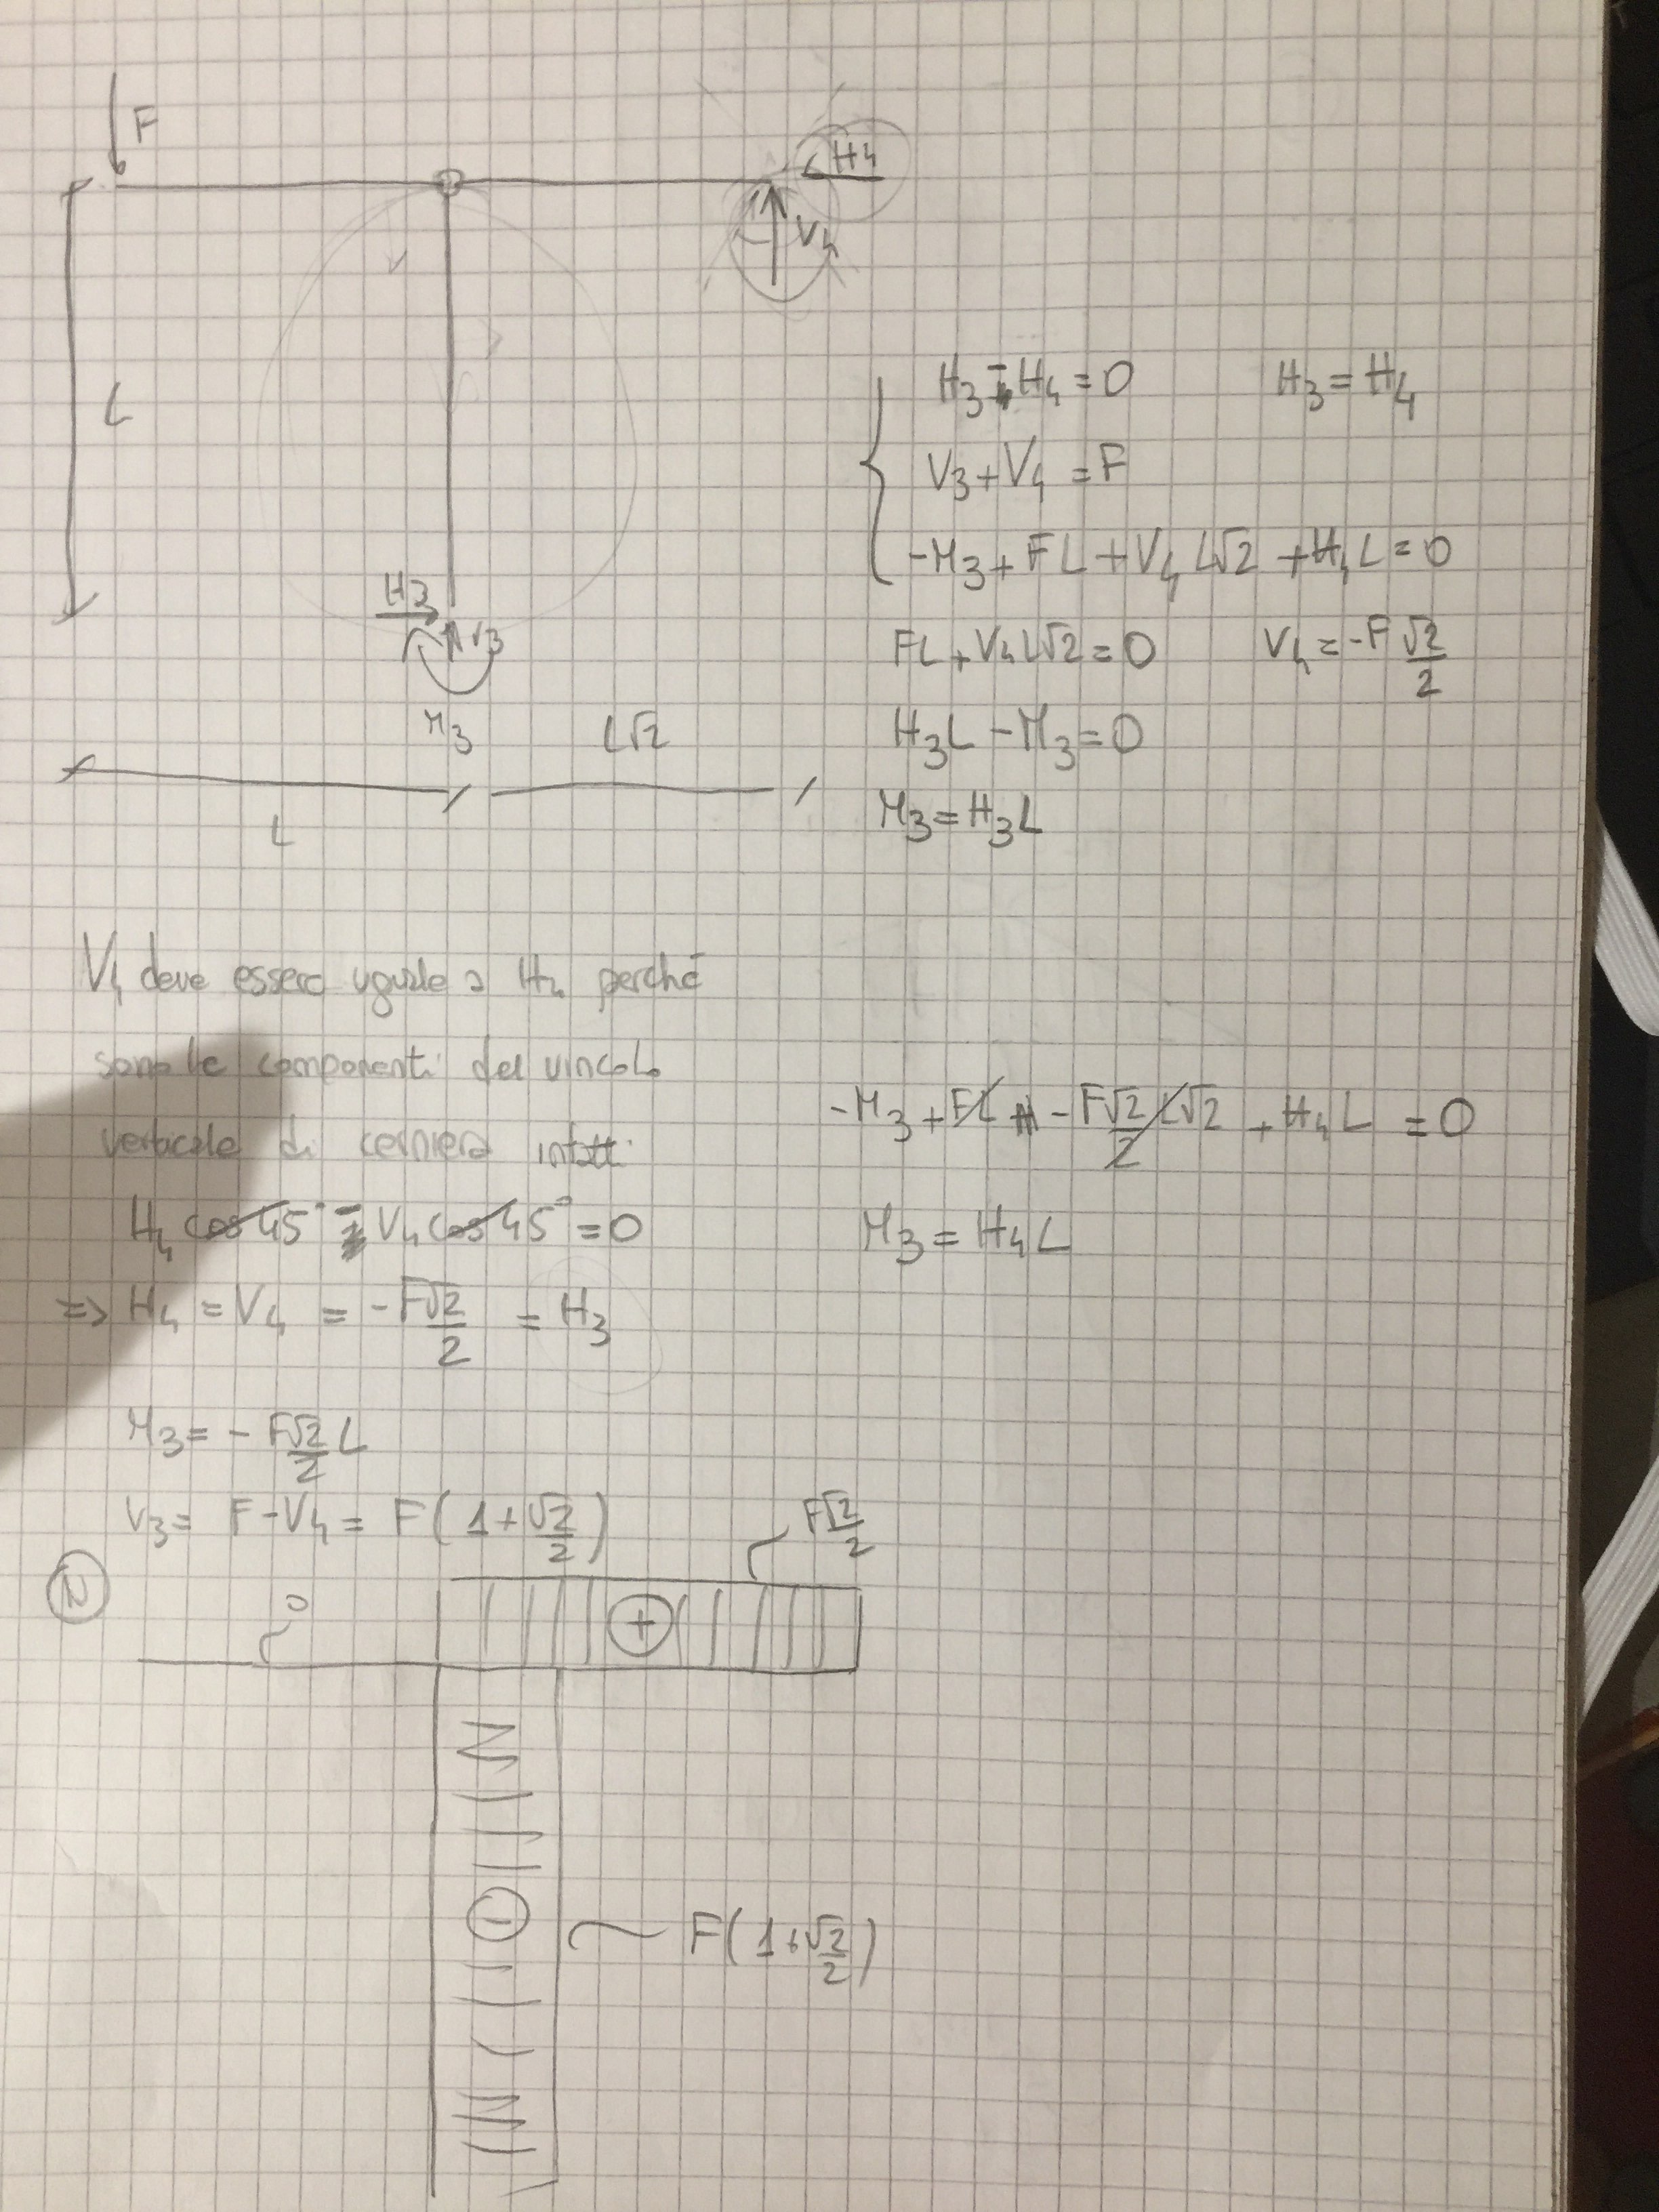 F
H4
V4
L
H3 - H4 = 0 H3 = H4
V3 + V4 = F
-M3 + FL + V4 L√2 + H4 L = 0
H3
V3
M3
L√2
L
FL + V4 L√2 = 0 V4 = -F √2/2
H3 L - M3 = 0
M3 = H3 L
V4 deve essere uguale a H4 perché
sono le componenti del vincolo
verticale di cerniera infatti
H4 cos 45° - V4 cos 45° = 0
=> H4 = V4 = -F√2/2 = H3
-M3 + FL - F√2/2 L√2 + H4 L = 0
M3 = H4 L
M3 = - F√2/2 L
V3 = F - V4 = F(1 + √2/2)
N
0
+
F√2/2
-
F(1 + √2/2)